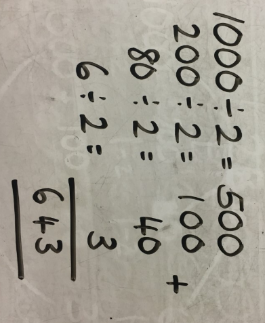 1000 ÷ 2 = 500
200 ÷ 2 = 100 +
80 ÷ 2 = 40
6 ÷ 2 = 3
643